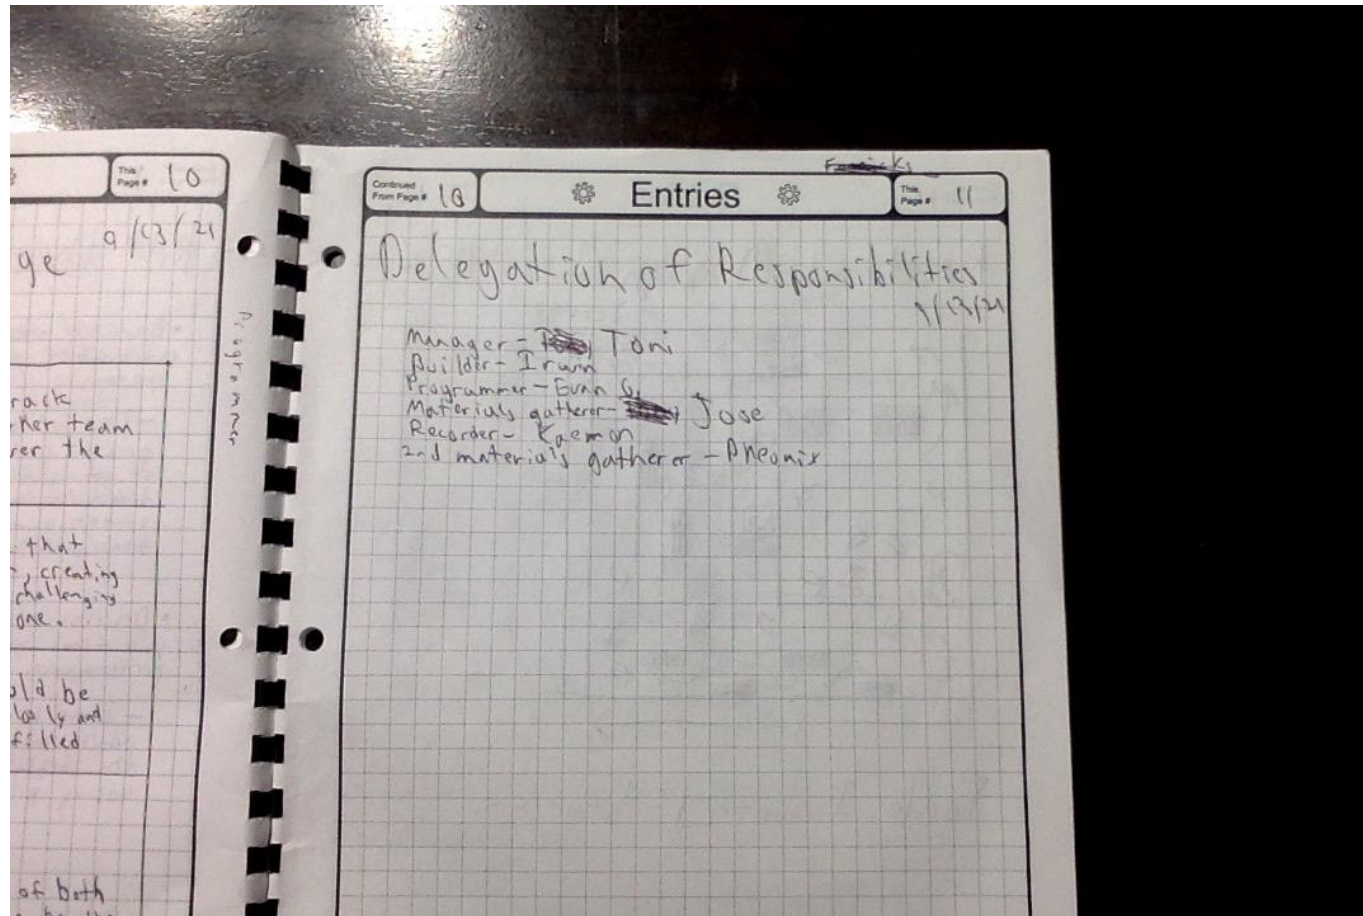 This
Page # 10
9/13/21
ge
Programmer
rack
her team
ver the
that
, creating
challenging
one.
uld be
and
filled
of both
Continued
From Page # 10
Entries
This
Page # 11
Delegation of Responsibilities
9/13/21
Manager - Toni
Builder - Irwin
Programmer - Evan G.
Materials gatherer - Jose
Recorder - Kaemon
2nd materials gatherer - Pheonix